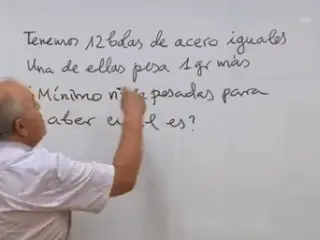 Tenemos 12 bolas de acero iguales
Una de ellas pesa 1 gr más
¿Mínimo nº de pesadas para
saber cual es?